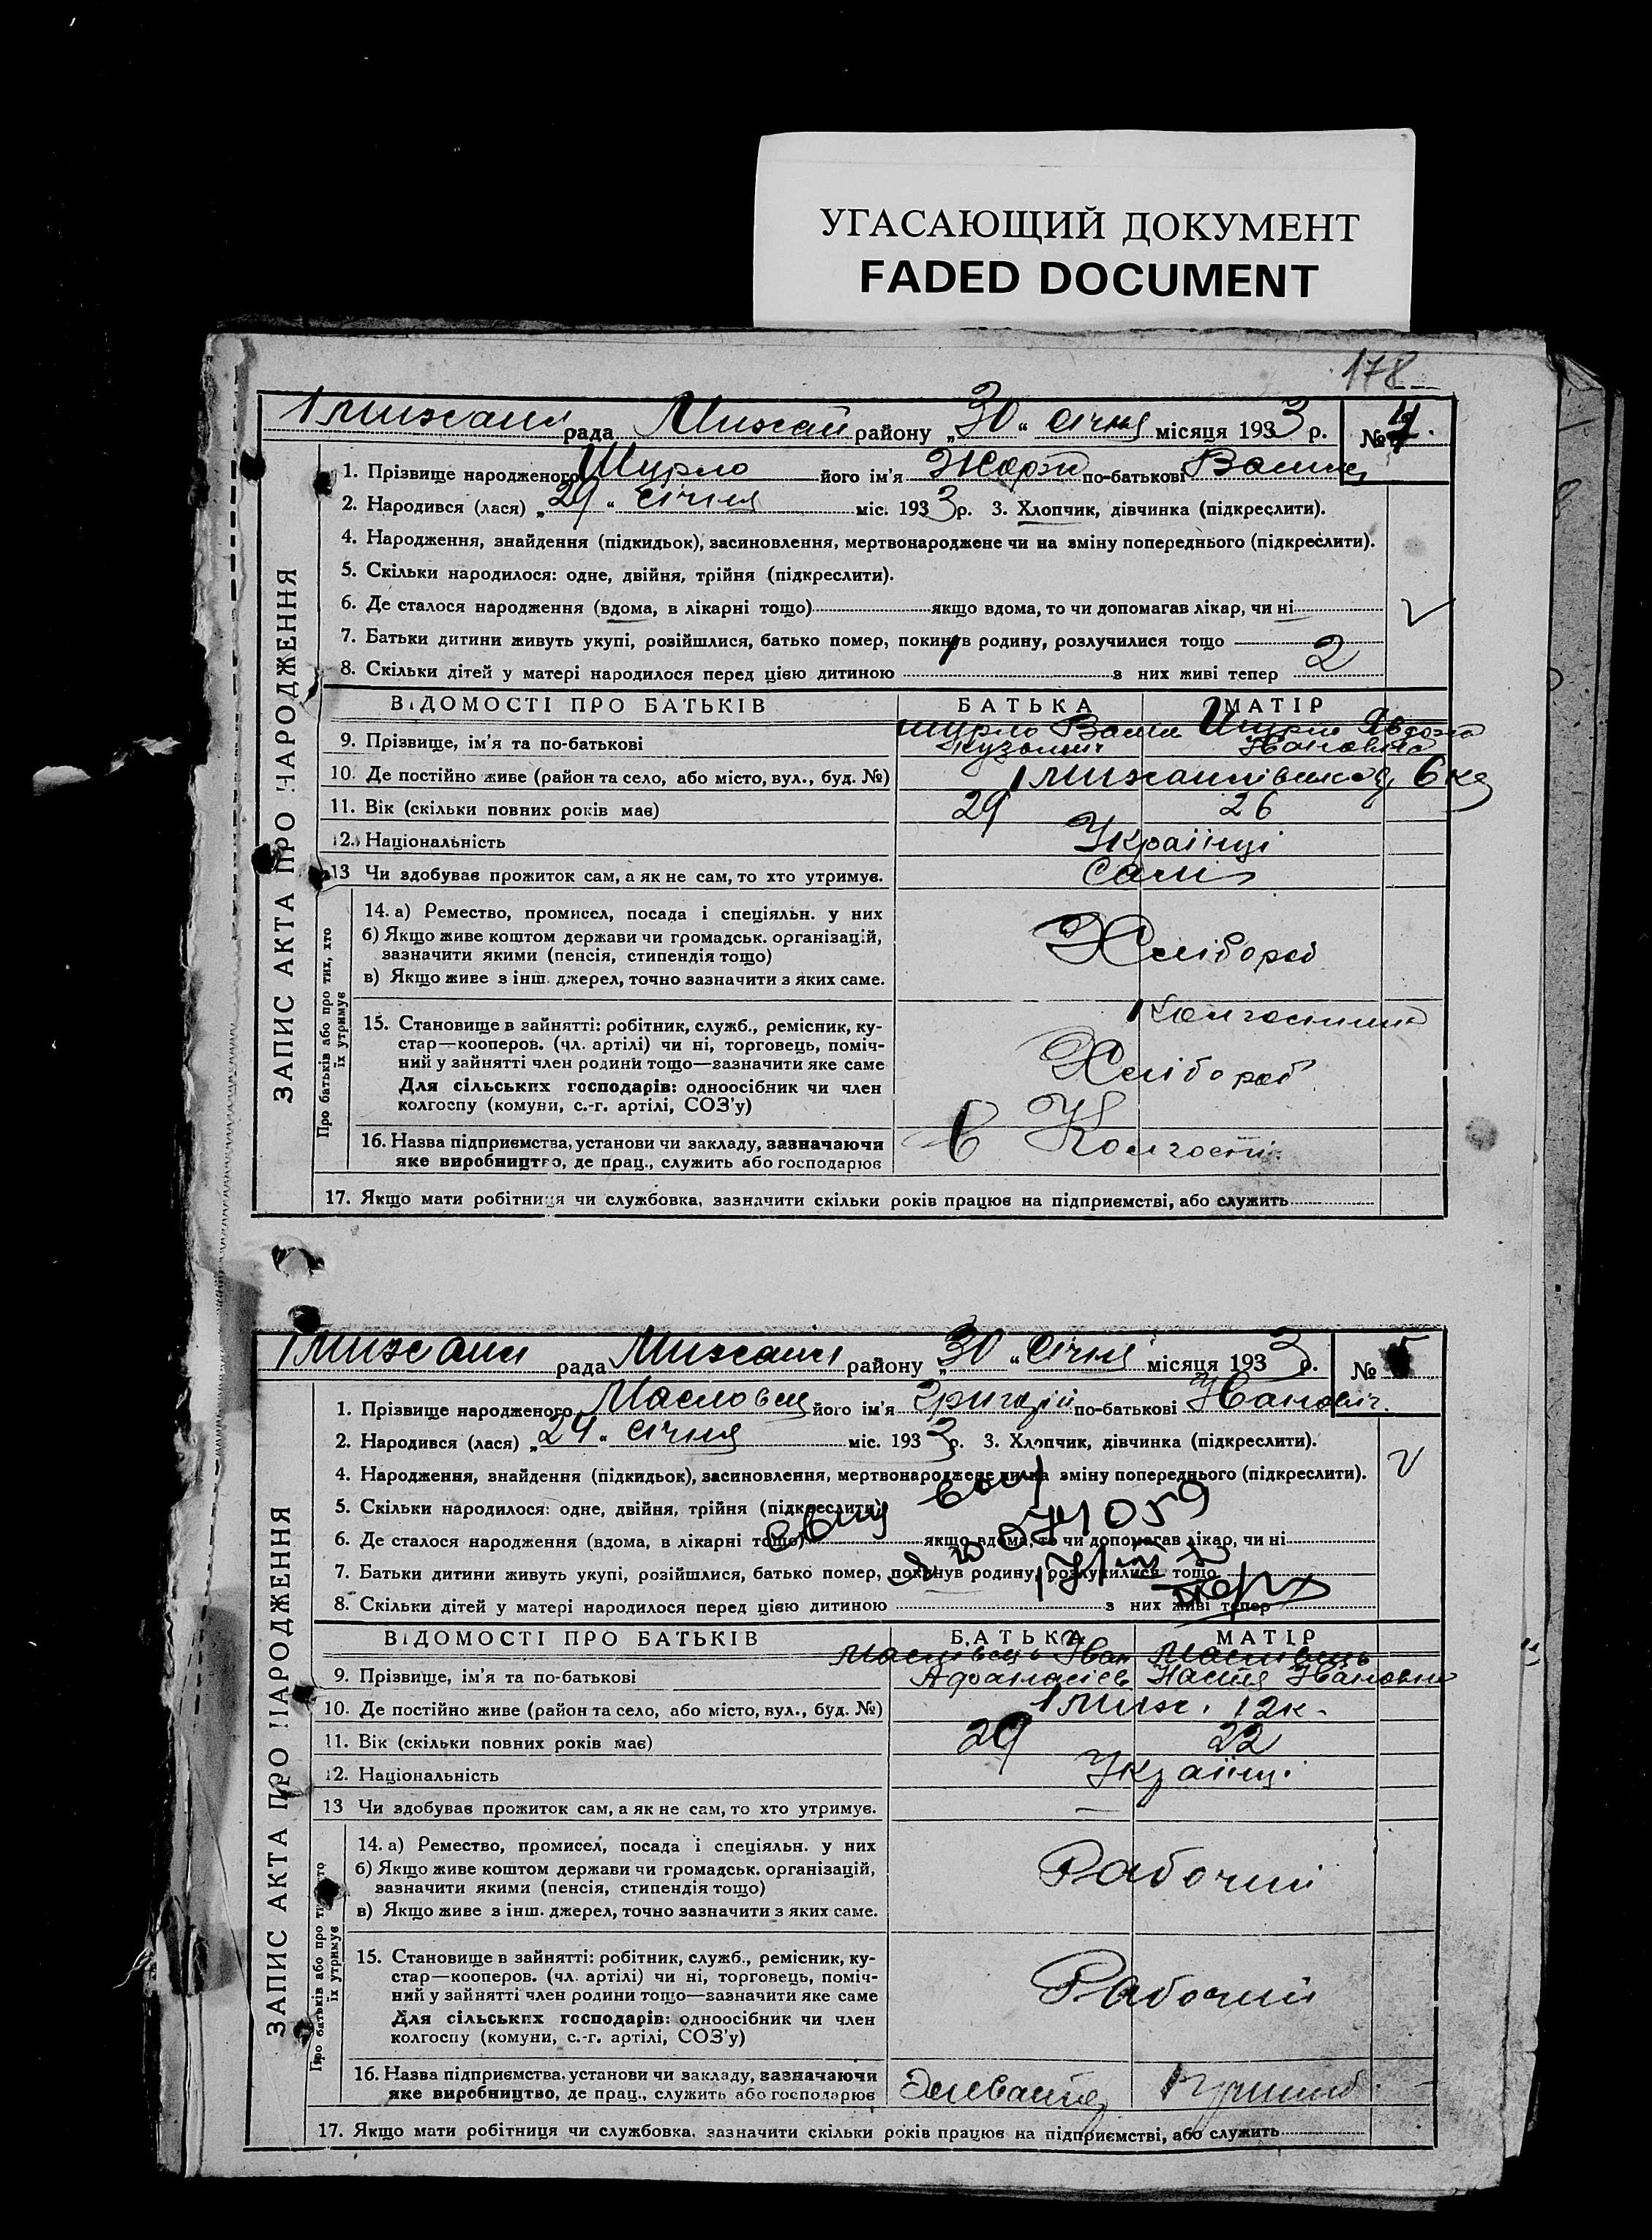 УГАСАЮЩИЙ ДОКУМЕНТ
FADED DOCUMENT
178
рада району „30“ січня місяця 1933 р. № 4.
1. Прізвище народженого Шурло його ім'я по-батькові
2. Народився (лася) „29“ січня міс. 1933 р. 3. Хлопчик, дівчинка (підкреслити).
4. Народження, знайдення (підкидьок), засиновлення, мертвонароджене чи на зміну попереднього (підкреслити).
5. Скільки народилося: одне, двійня, трійня (підкреслити).
6. Де сталося народження (вдома, в лікарні тощо) якщо вдома, то чи допомагав лікар, чи ні
7. Батьки дитини живуть укупі, розійшлися, батько помер, покинув родину, розлучилися тощо
8. Скільки дітей у матері народилося перед цією дитиною з них живі тепер 2
ЗАПИС АКТА ПРО НАРОДЖЕННЯ
ВІДОМОСТІ ПРО БАТЬКІВ БАТЬКА МАТІР
9. Прізвище, ім'я та по-батькові Шурло
10. Де постійно живе (район та село, або місто, вул., буд. №)
11. Вік (скільки повних років має) 29 26
12. Національність Українці
13 Чи здобуває прожиток сам, а як не сам, то хто утримує. Самі
Про батьків або про тих, хто їх утримує
14. а) Ремество, промисел, посада і спеціяльн. у них
б) Якщо живе коштом держави чи громадськ. організацій,
зазначити якими (пенсія, стипендія тощо) Хлібороб
в) Якщо живе з інш. джерел, точно зазначити з яких саме.
15. Становище в зайнятті: робітник, служб., ремісник, ку-
стар—кооперов. (чл. артілі) чи ні, торговець, поміч-
ний у зайнятті член родини тощо—зазначити яке саме Хлібороб
Для сільських господарів: одноосібник чи член
колгоспу (комуни, с.-г. артілі, СОЗ'у)
16. Назва підприємства, установи чи закладу, зазначаючи В Колгоспі
яке виробництво, де прац., служить або господарює
17. Якщо мати робітниця чи службовка, зазначити скільки років працює на підприємстві, або служить
рада району „30“ січня місяця 1933 р. № 5
1. Прізвище народженого його ім'я Григорій по-батькові Іванович
2. Народився (лася) „24“ січня міс. 1933 р. 3. Хлопчик, дівчинка (підкреслити).
4. Народження, знайдення (підкидьок), засиновлення, мертвонароджене чи на зміну попереднього (підкреслити).
5. Скільки народилося: одне, двійня, трійня (підкреслити)
6. Де сталося народження (вдома, в лікарні тощо) якщо вдома, то чи допомагав лікар, чи ні
7. Батьки дитини живуть укупі, розійшлися, батько помер, покинув родину, розлучилися тощо
8. Скільки дітей у матері народилося перед цією дитиною з них живі тепер
ЗАПИС АКТА ПРО НАРОДЖЕННЯ
ВІДОМОСТІ ПРО БАТЬКІВ БАТЬКА МАТІР
Іван
9. Прізвище, ім'я та по-батькові Настя Івановна
10. Де постійно живе (район та село, або місто, вул., буд. №) 12к.
11. Вік (скільки повних років має) 29 22
12. Національність Українці
13 Чи здобуває прожиток сам, а як не сам, то хто утримує. —
Про батьків або про тих, хто їх утримує
14. а) Ремество, промисел, посада і спеціяльн. у них
б) Якщо живе коштом держави чи громадськ. організацій,
зазначити якими (пенсія, стипендія тощо) Рабочий
в) Якщо живе з інш. джерел, точно зазначити з яких саме.
15. Становище в зайнятті: робітник, служб., ремісник, ку-
стар—кооперов. (чл. артілі) чи ні, торговець, поміч-
ний у зайнятті член родини тощо—зазначити яке саме Рабочий
Для сільських господарів: одноосібник чи член
колгоспу (комуни, с.-г. артілі, СОЗ'у)
16. Назва підприємства, установи чи закладу, зазначаючи
яке виробництво, де прац., служить або господарює
17. Якщо мати робітниця чи службовка, зазначити скільки років працює на підприємстві, або служить